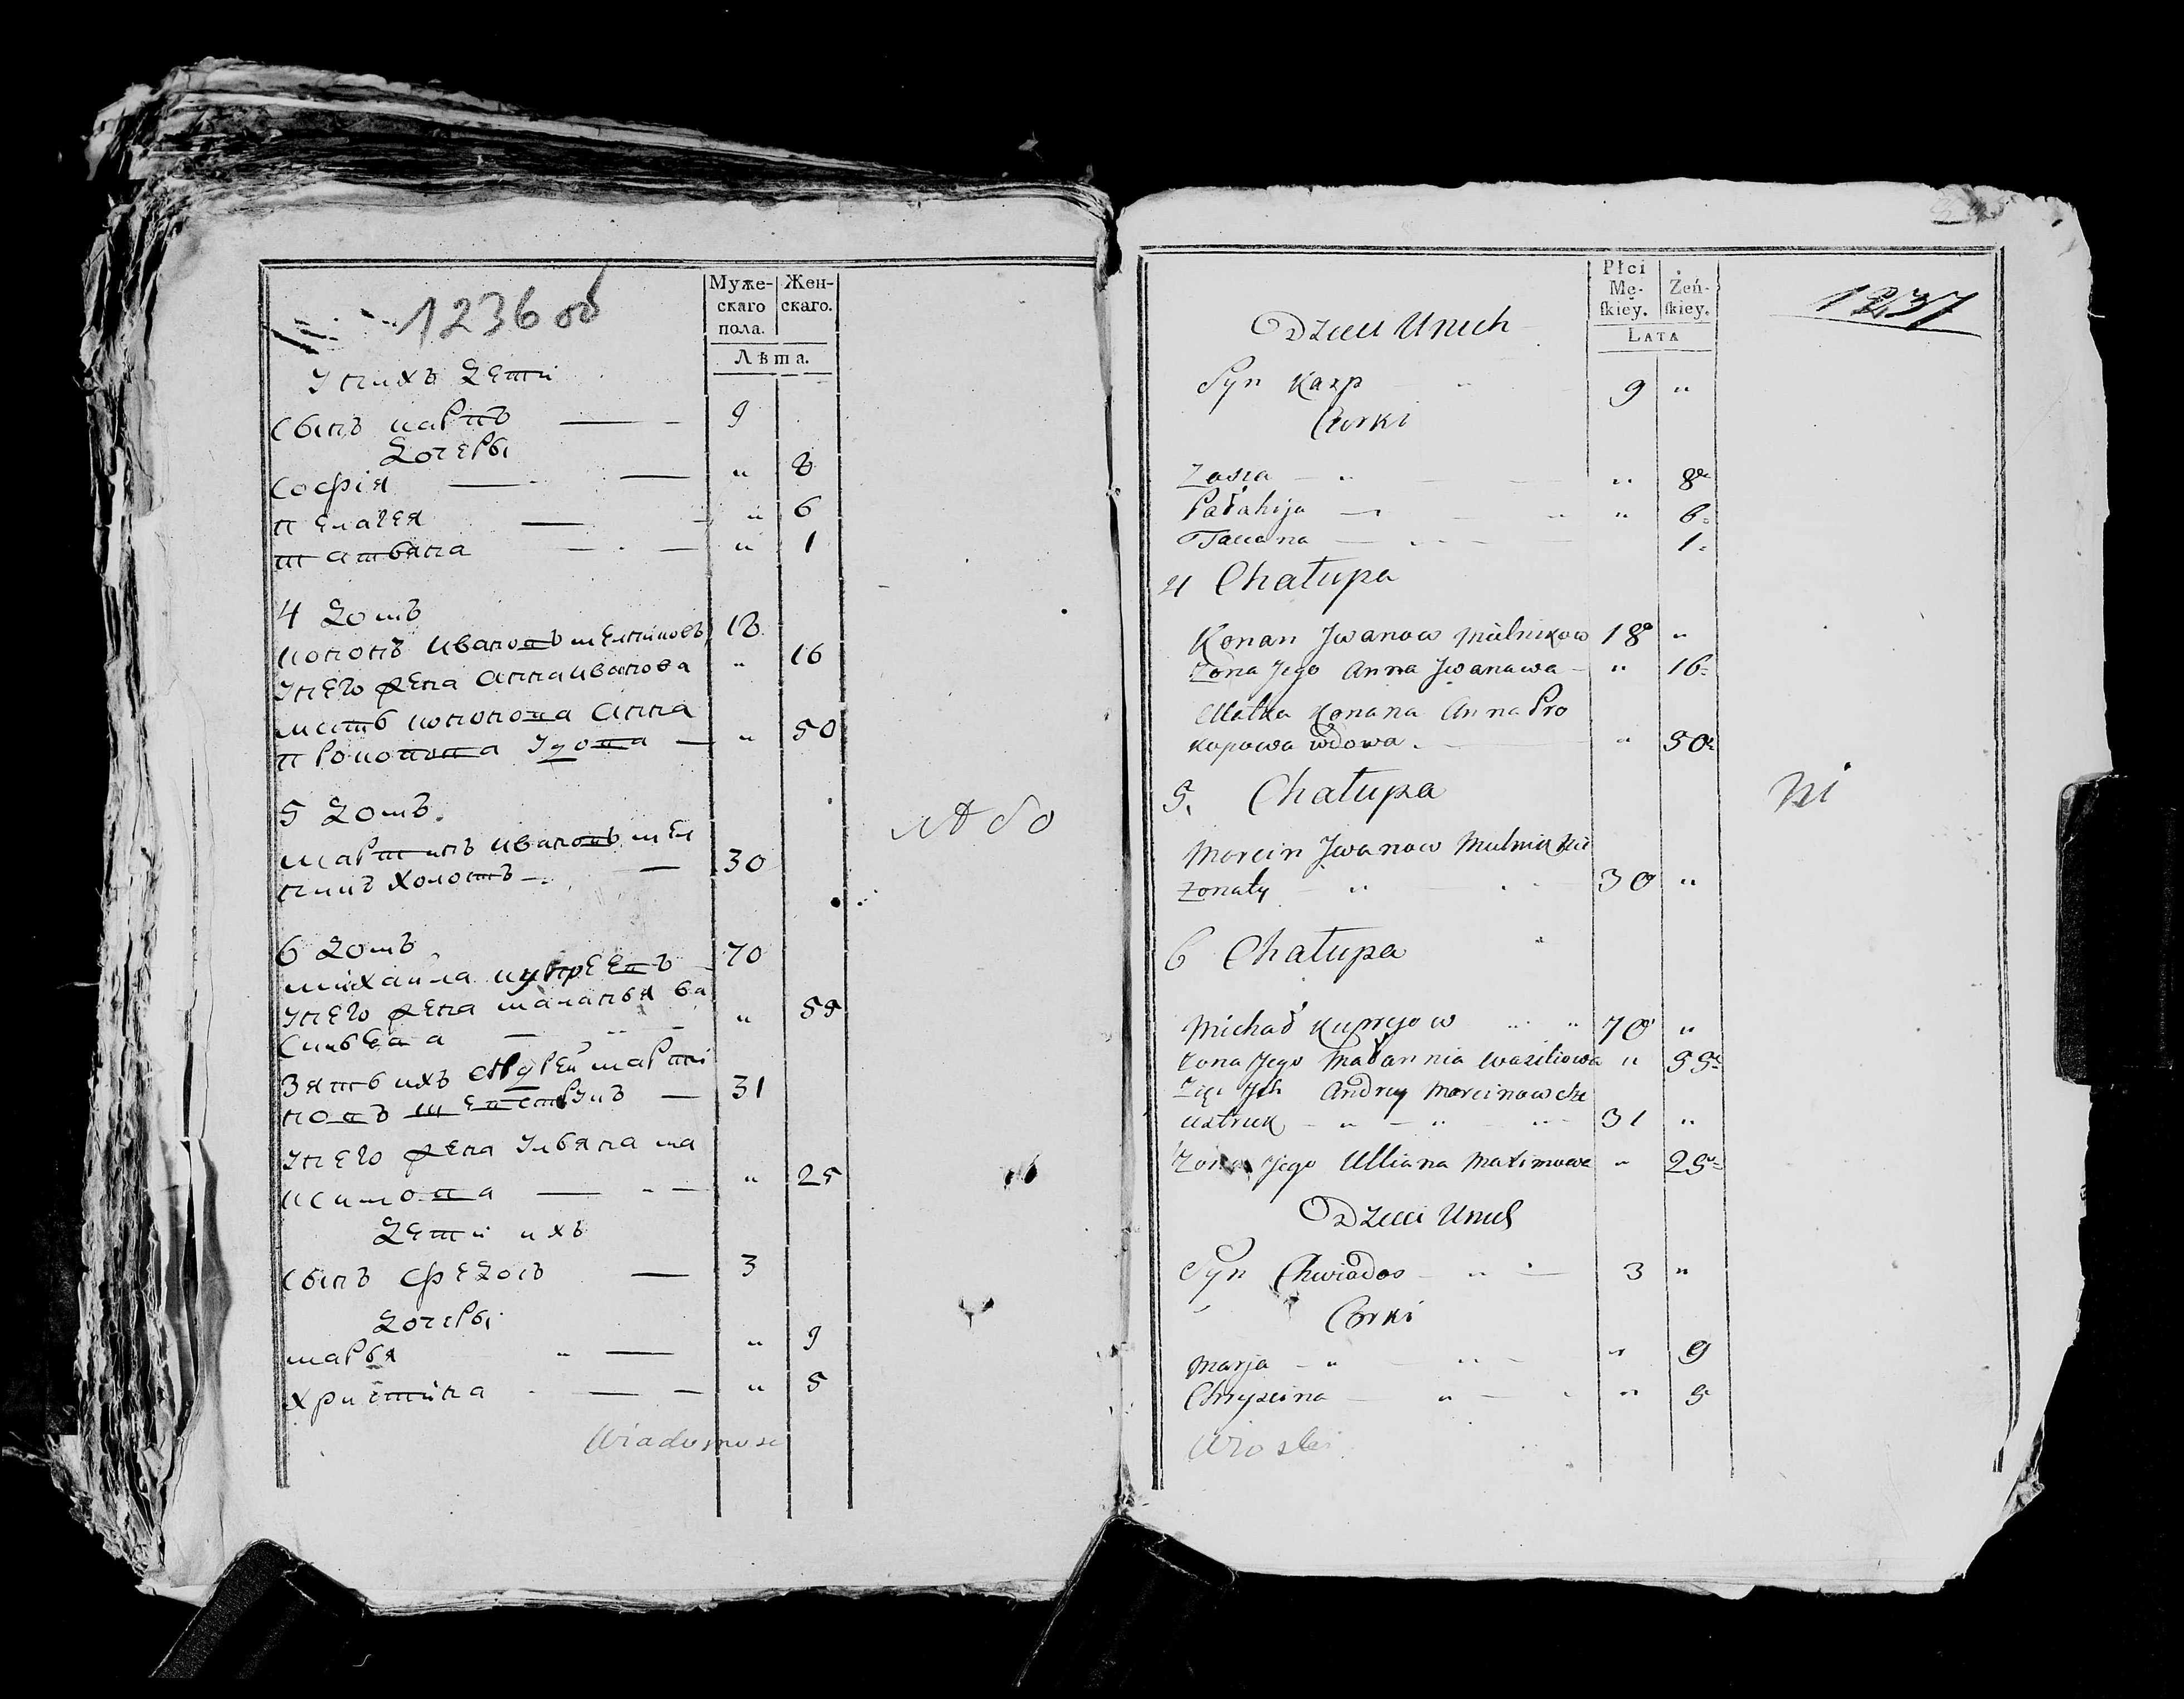 1236 об
Муже-
скаго
пола.
Жен-
скаго.
Лѣта.
Унихъ Дети
Сынъ Карпъ 9
Дочеры
Софія " 8
Пелагея " 6
Татьяна " 1
4 Домъ
Кононъ Ивановъ Мелниковъ 18
Унего жена Анна Иванова " 16
Мать Кононова Анна
Прокопова Удова " 50
5 Домъ.
Мартинъ Ивановъ Мел
никъ Холостъ 30
6 Домъ
Михайла Купреевъ 70
Унего жена Маланья Ва
сильева " 55
Зять ихъ Андрей Марти
новъ 31
Унего жена Ульяна Ма
ксимова " 25
Дети ихъ
Сынъ Федосъ 3
Дочеры
Марья " 9
Христина " 5
Wiadomosc
Płci
Mę-
skiey.
Żeń-
skiey.
LATA
1237
Dzieci Unich
Syn Karp 9 "
Corki
Zosia " 8
Pałahija " 6
Taciana 1
4 Chałupa
Konan Jwanow Mielnikow 18 "
Zona Jego Anna Jwanawa " 16
Matka Konana Anna Pro
kopowa wdowa " 50
5. Chałupa
Marcin Jwanow Mielnik Nie
zonaty 30 "
6 Chałupa
Michał Kupryjow 70 "
Zona Jego Małannia Wasiliowa " 55
Zięć Ich Andrey Marcinow
31 "
Zona Jego Ulliana Maximowa " 25
Dzieci Unich
Syn Chwiados 3 "
Corki
Marja " 9
Chryscina " 5